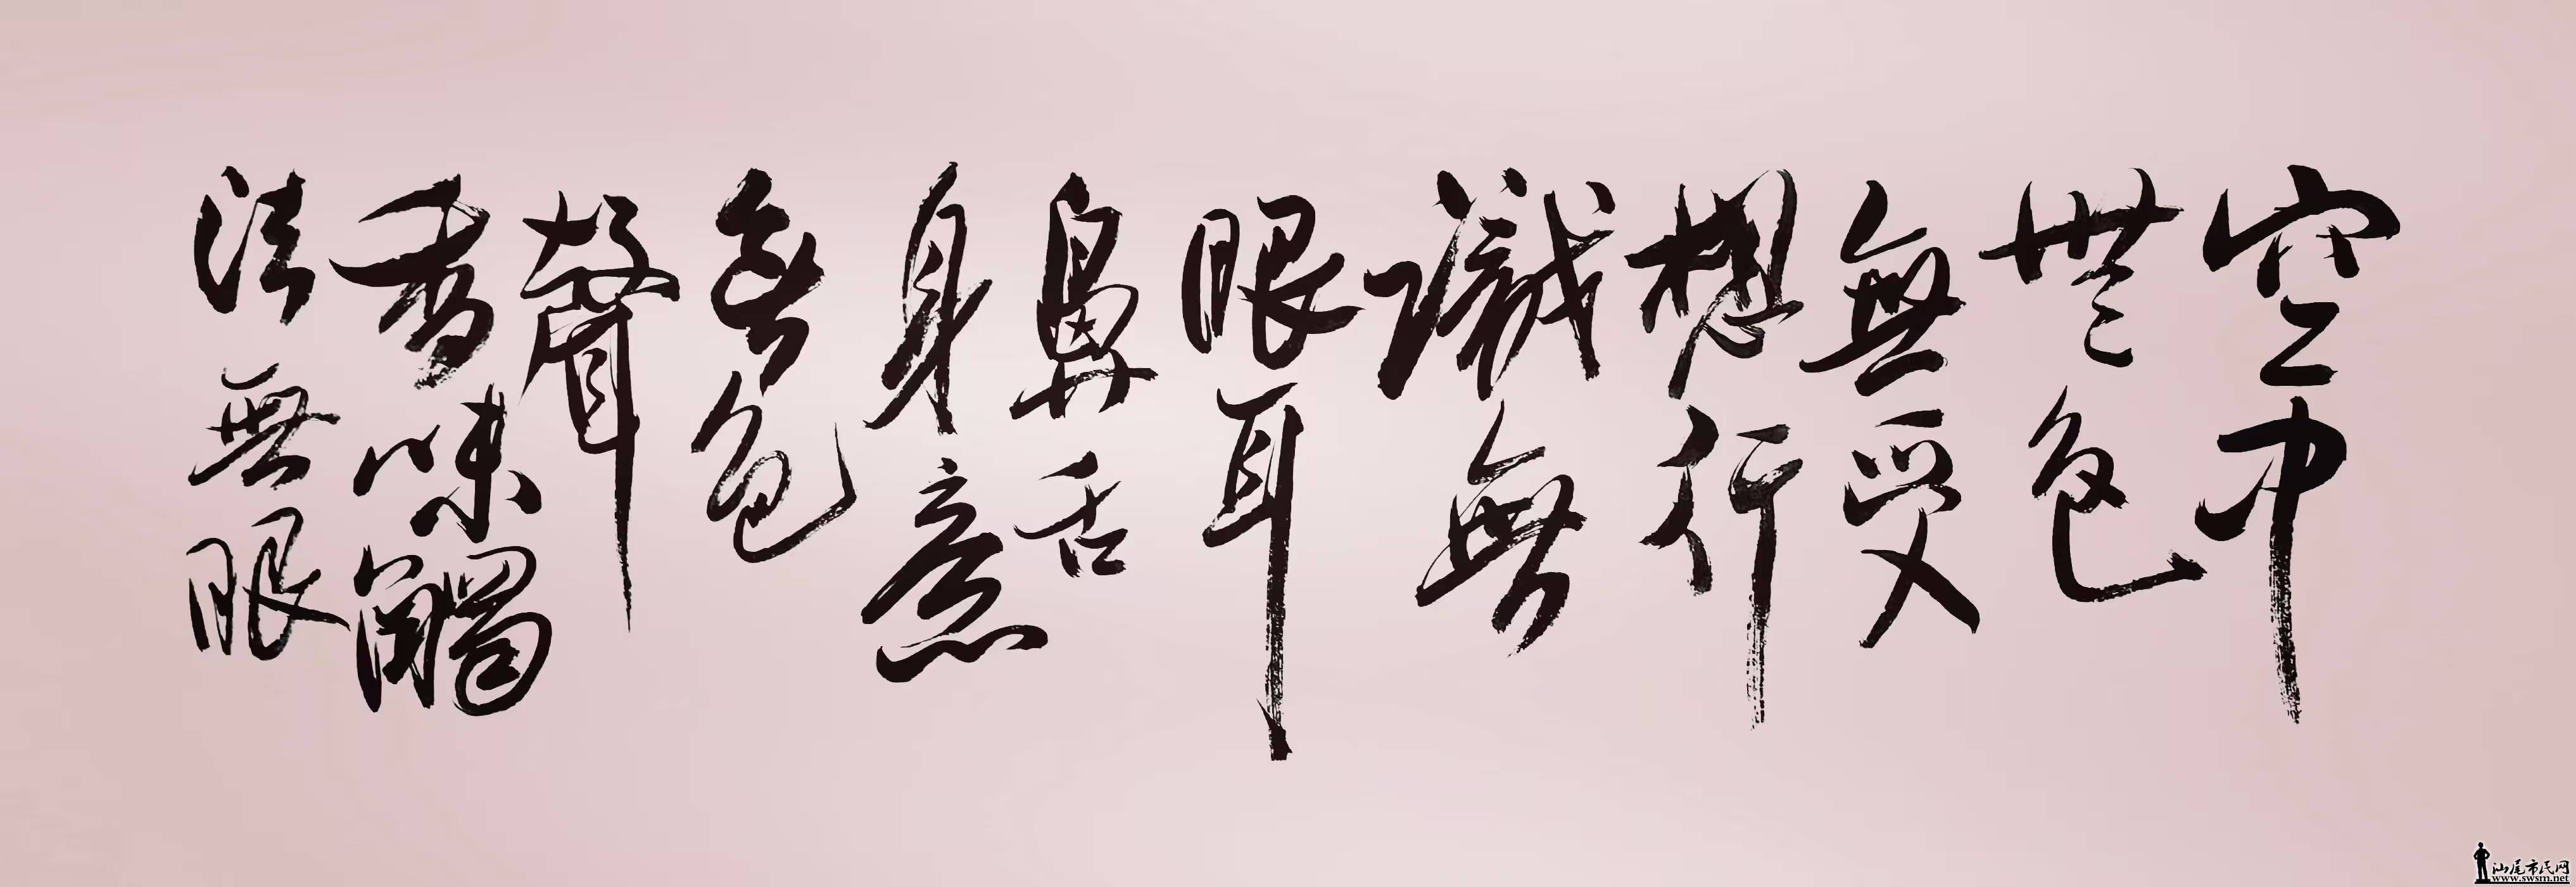 空中
無色
無受
想行
識無
眼耳
鼻舌
身意
無色
聲
香味觸
法無眼
汕尾市民网
www.swsm.net